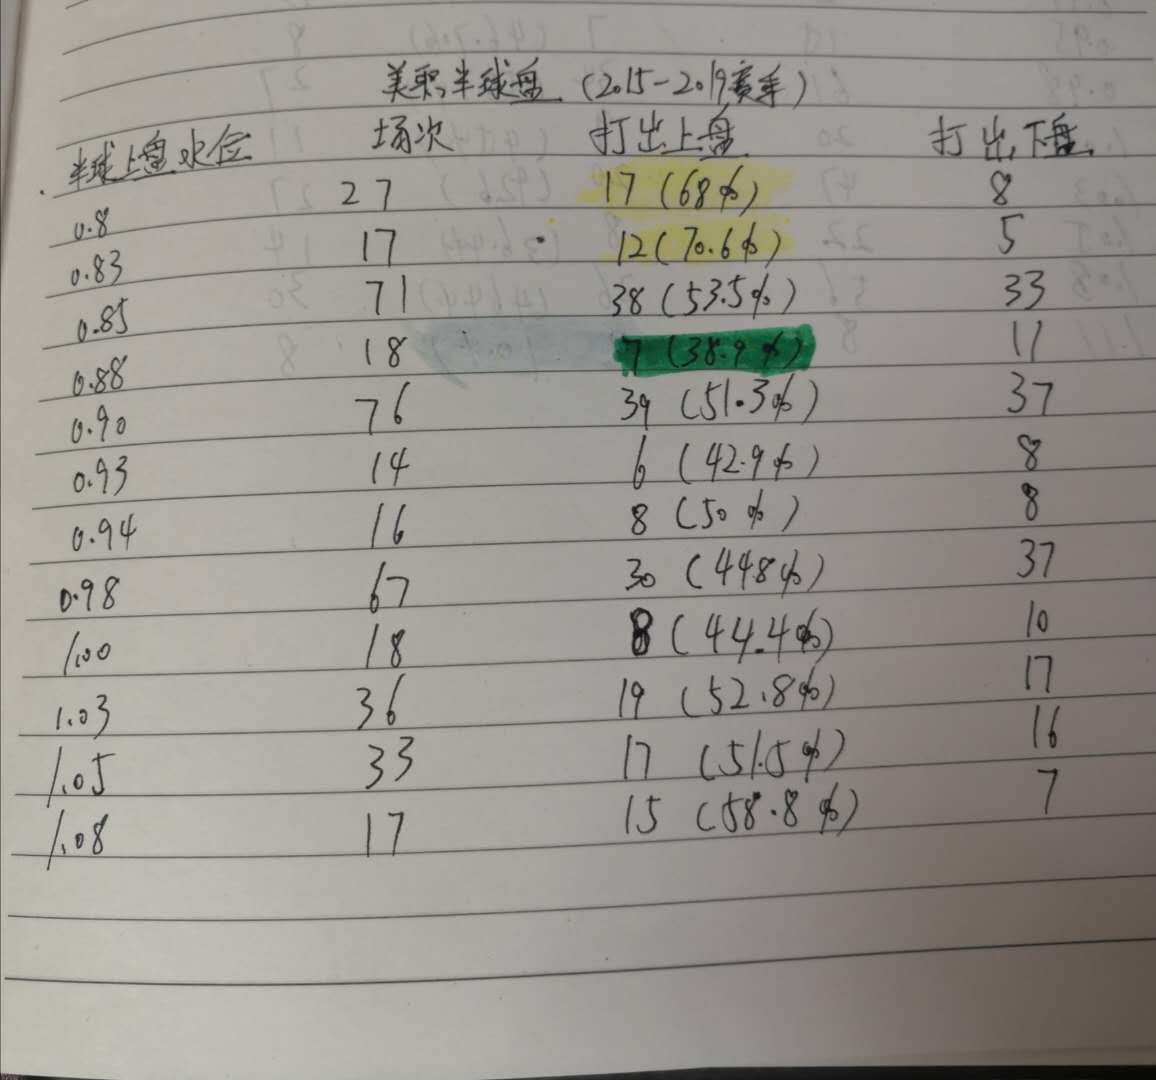 美职半球盘 (2015-2019赛季)
半球上盘水位 场次 打出上盘 打出下盘
0.8 27 17 (68%) 8
0.83 17 12 (70.6%) 5
0.85 71 38 (53.5%) 33
0.88 18 7 (38.9%) 11
0.90 76 39 (51.3%) 37
0.93 14 6 (42.9%) 8
0.94 16 8 (50%) 8
0.98 67 30 (44.8%) 37
1.00 18 8 (44.4%) 10
1.03 36 19 (52.8%) 17
1.05 33 17 (51.5%) 16
1.08 17 15 (58.8%) 7